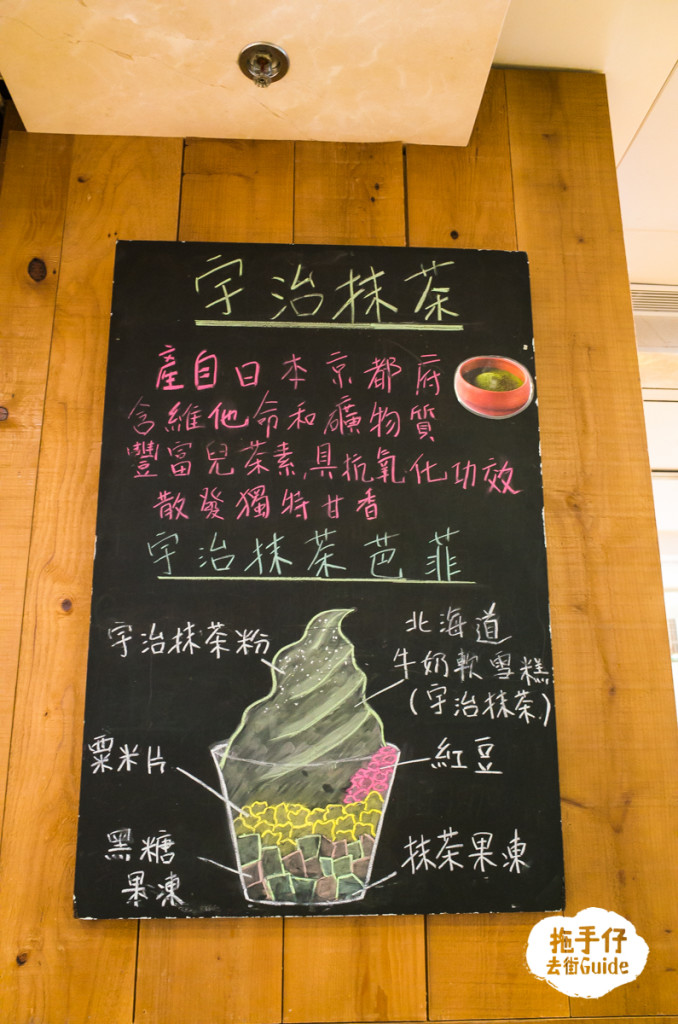 宇治抹茶
產自日本京都府
含維他命和礦物質
豐富兒茶素,具抗氧化功效
散發獨特甘香
宇治抹茶芭菲
宇治抹茶粉
北海道
牛奶軟雪糕
(宇治抹茶)
粟米片
紅豆
黑糖
果凍
抹茶果凍
拖手仔
去街Guide